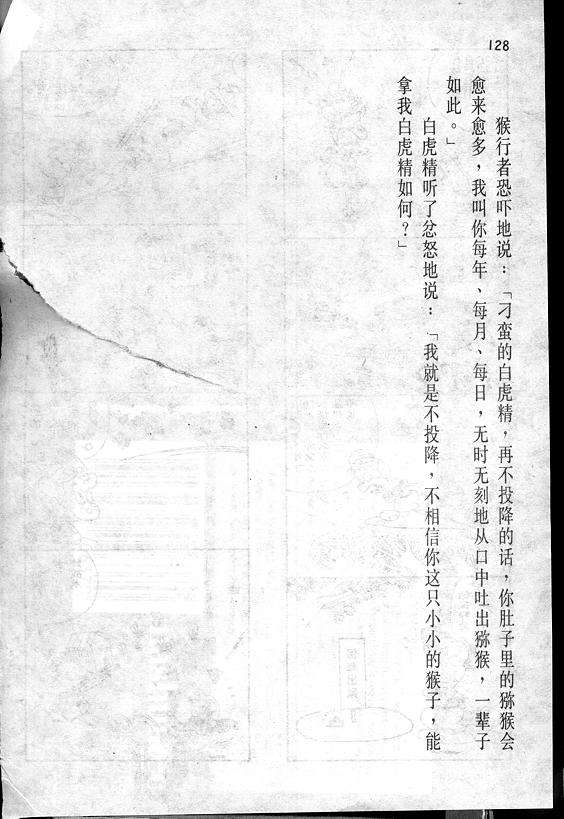 128
猴行者恐吓地说：「刁蛮的白虎精，再不投降的话，你肚子里的猕猴会
愈来愈多，我叫你每年、每月、每日，无时无刻地从口中吐出猕猴，一辈子
如此。」
白虎精听了忿怒地说：「我就是不投降，不相信你这只小小的猴子，能
拿我白虎精如何？」